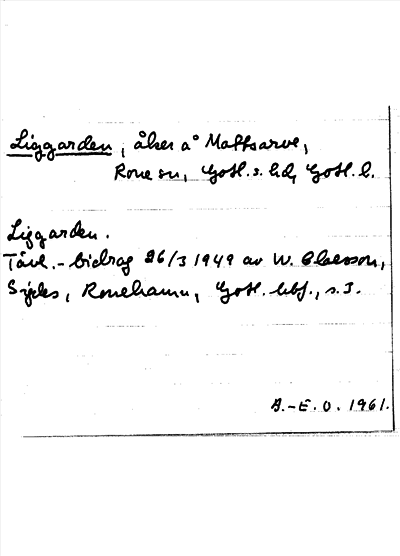 Liggarden, åker å Maffsarve,
Rone sn, Gotl. s. hd, Gotl. l.
Liggarden.
Tävl.-bidrag 26/3 1949 av W. Claesson,
Sigdes, Ronehamn, Gotl. hbf., s. 3.
B.-E. O. 1961.